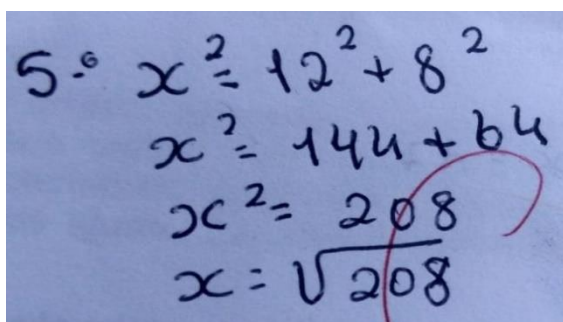 5.º x² = 12² + 8²
x² = 144 + 64
x² = 208
x = √208